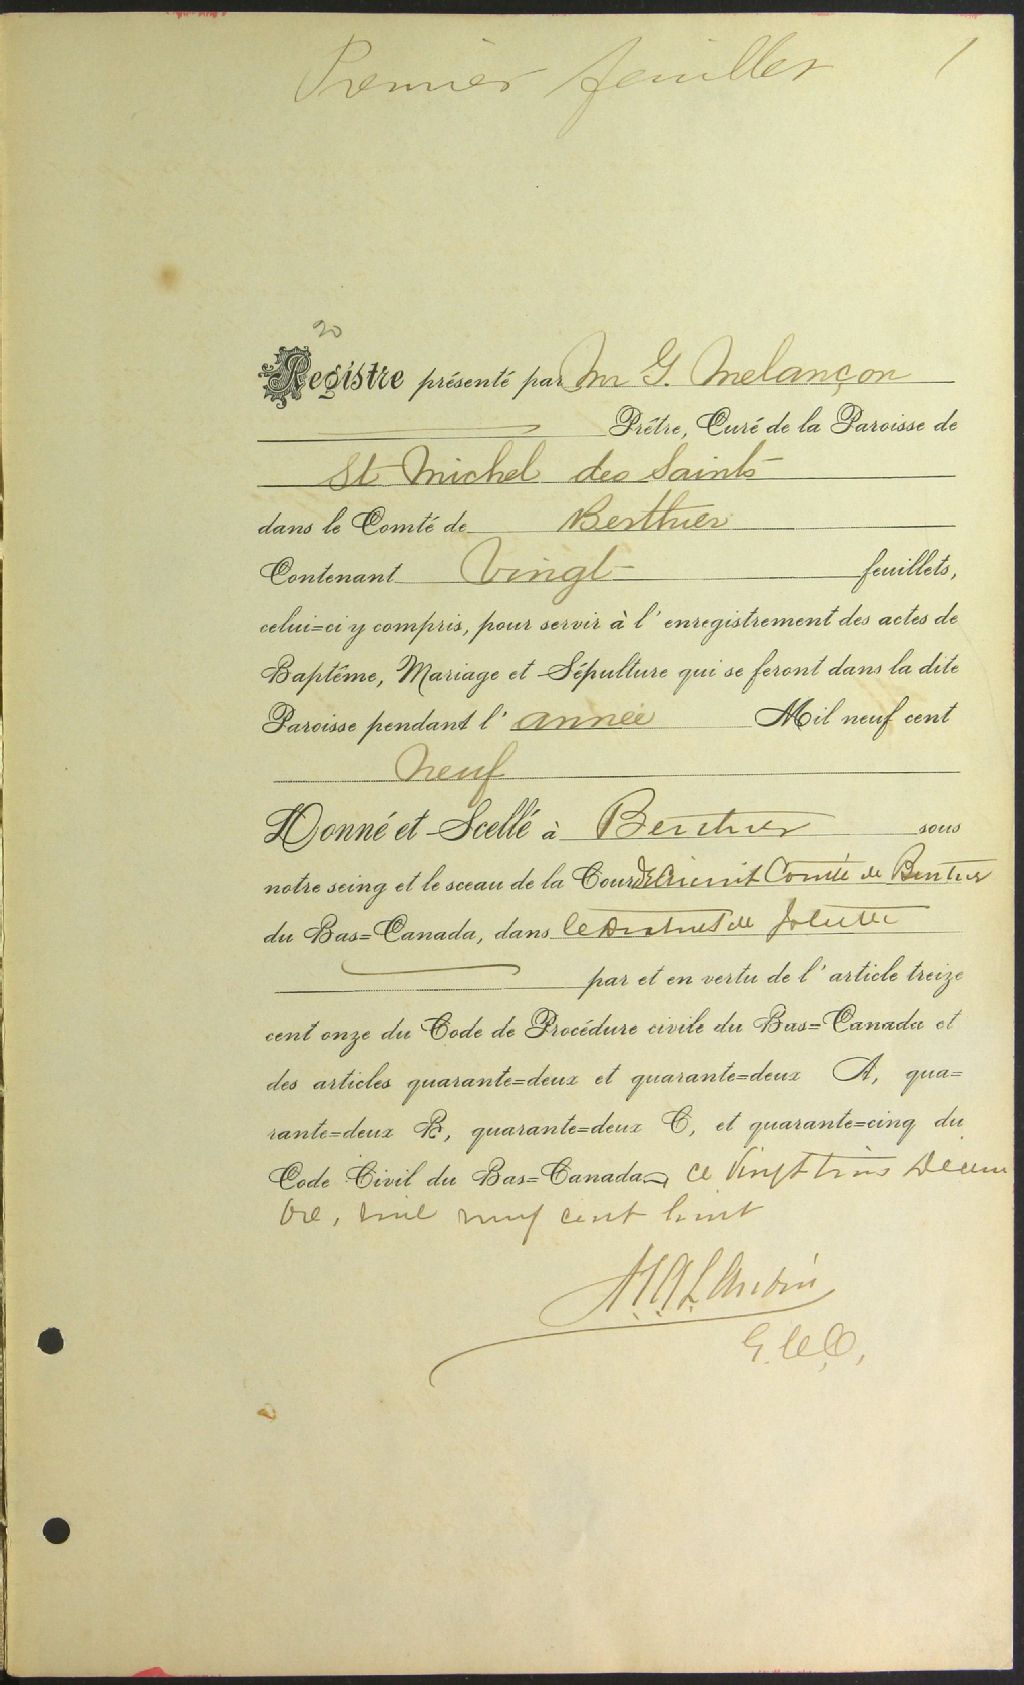 Premier feuillet 1
20
Registre présenté par Mr G. Melançon
Prêtre, Curé de la Paroisse de
St Michel des Saints
dans le Comté de Berthier
Contenant Vingt feuillets,
celui=ci y compris, pour servir à l'enregistrement des actes de
Baptême, Mariage et Sépulture qui se feront dans la dite
Paroisse pendant l'année Mil neuf cent
neuf
Donné et Scellé à Berthier sous
notre seing et le sceau de la Cour de Circuit Comté de Berthier
du Bas=Canada, dans le District de Joliette
par et en vertu de l'article treize
cent onze du Code de Procédure civile du Bas=Canada et
des articles quarante=deux et quarante=deux A, qua=
rante=deux B, quarante=deux C, et quarante=cinq du
Code Civil du Bas=Canada, ce Vingt trois Décem
bre, mil neuf cent huit
G. C. C.